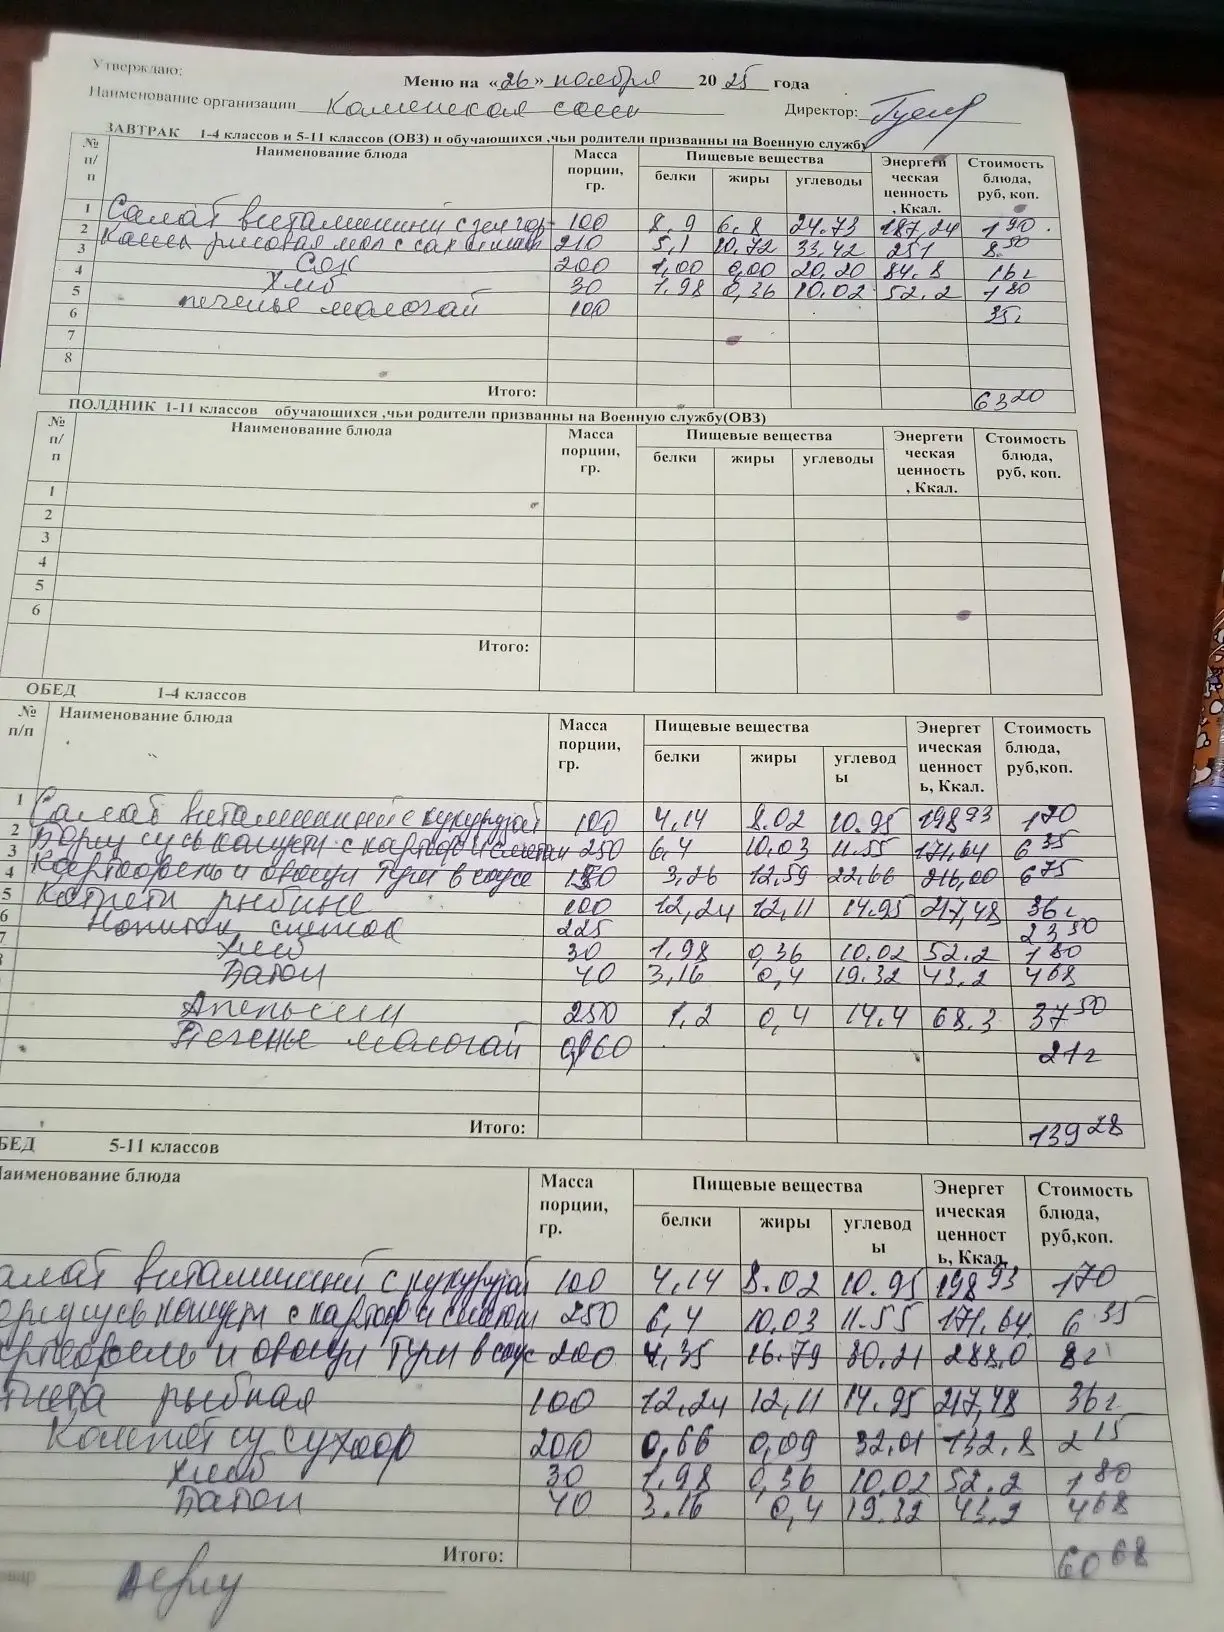 Утверждаю:
Меню на «26» ноября 2025 года
Наименование организации Каменская сош Директор:
ЗАВТРАК 1-4 классов и 5-11 классов (ОВЗ) и обучающихся ,чьи родители призванны на Военную службу
№ п/п Наименование блюда Масса порции, гр. Пищевые вещества Энергетическая ценность, Ккал. Стоимость блюда, руб, коп.
белки жиры углеводы
1 Салат витаминний с зел гор 100 8.9 6.8 24.73 187,24 1 90
2 Каша рисовая мол с сах 210 5,1 10.72 33,42 251 8.50
3 Сок 200 1,00 0,00 20,20 84,8 16
4 Хлеб 30 1.98 0,36 10.02 52.2 1 80
5 печенье мологай 100 35
6
7
8
Итого: 63 20
ПОЛДНИК 1-11 классов обучающихся ,чьи родители призванны на Военную службу(ОВЗ)
№ п/п Наименование блюда Масса порции, гр. Пищевые вещества Энергетическая ценность, Ккал. Стоимость блюда, руб, коп.
белки жиры углеводы
1
2
3
4
5
6
Итого:
ОБЕД 1-4 классов
№ п/п Наименование блюда Масса порции, гр. Пищевые вещества Энергетическая ценность, Ккал. Стоимость блюда, руб,коп.
белки жиры углеводы
1 Салат витаминний с кукурузой 100 4,14 8.02 10.95 198 93 1 70
2 Борщ с капуст с картоф и сметан 250 6,4 10,03 11.55 171,64 6 35
3 Картофель и овощи туш в соусе 150 3,26 12,59 22,66 216,00 6 75
4 Котлети рыбние 100 12,24 12,11 14.95 217,48 36
5 Напиток 225 23 50
6 Хлеб 30 1.98 0,36 10.02 52.2 1 80
7 Батон 40 3,16 0,4 19.32 43,2 4 68
Апельсин 250 1,2 0,4 14.4 68.3 37 50
Печенье мологай 0,060 21
Итого: 139 28
БЕД 5-11 классов
Наименование блюда Масса порции, гр. Пищевые вещества Энергетическая ценность, Ккал. Стоимость блюда, руб,коп.
белки жиры углеводы
алат витаминний с кукурузой 100 4,14 8.02 10.95 198 93 1 70
капуст с картоф и сметан 250 6,4 10.03 11.55 171.64 6 35
артофель и овощи туш в соус 200 4,35 16.79 30,21 288.0 8
тлета рыбная 100 12,24 12,11 14.95 217,48 36
Компот су сухофр 200 0,66 0,09 32,01 132,8 2 15
Хлеб 30 1.98 0,36 10.02 52.2 1 80
Батон 40 3.16 0,4 19.32 43,2 4 68
Итого: 60 68